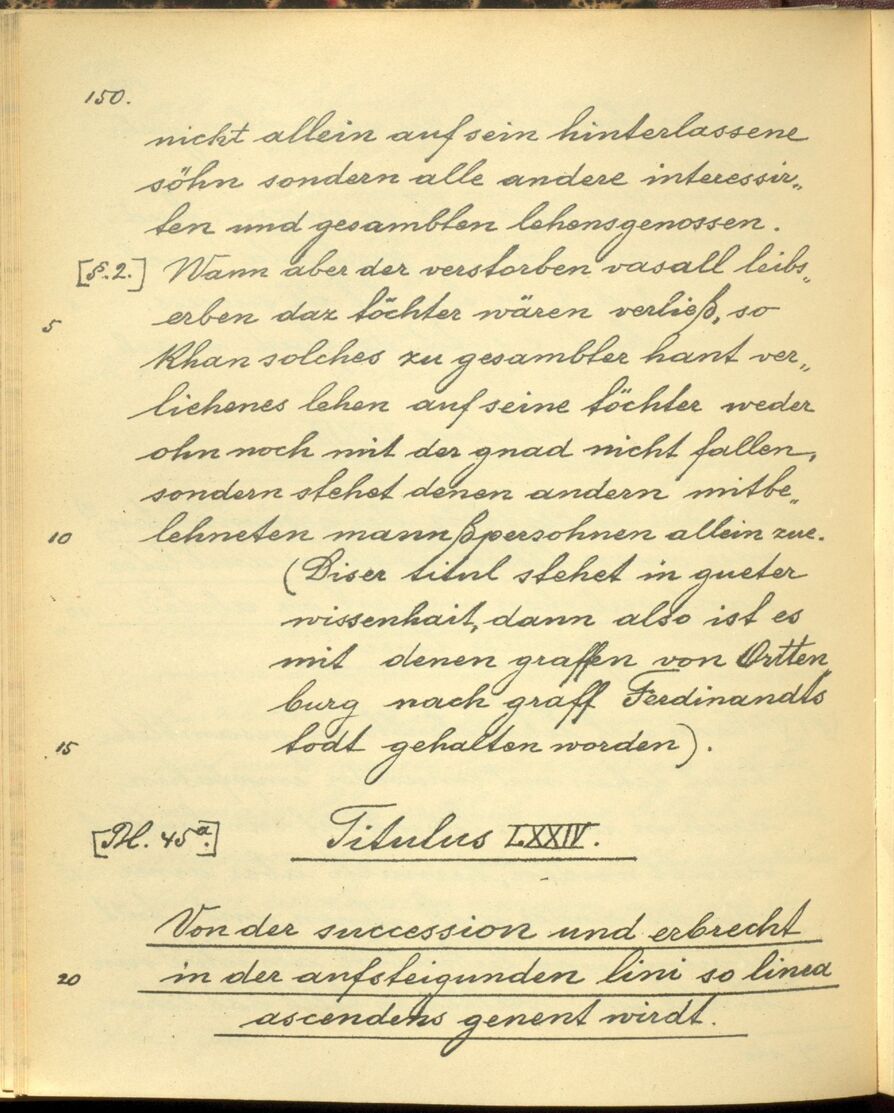 150.
nicht allein auf sein hinterlassene
söhn sondern alle andere interessir„
ten und gesambten lehensgenossen.
[§.2.] Wann aber der verstorben vasall leibs„
5 erben daz töchter wären verließ, so
khan solches zu gesambter hant ver„
liehenes lehen auf seine töchter weder
ohn noch mit der gnad nicht fallen,
sondern stehet denen andern mitbe„
10 lehneten mannßpersohnen allein zue.
(Diser titul stehet in gueter
wissenhait, dann also ist es
mit denen graffen von Ortten„
burg nach graff Ferdinandts
15 todt gehalten worden).
[Bl. 45a.] Titulus LXXIV.
Von der succession und erbrecht
20 in der aufsteigunden lini so linea
ascendens genent wirdt.